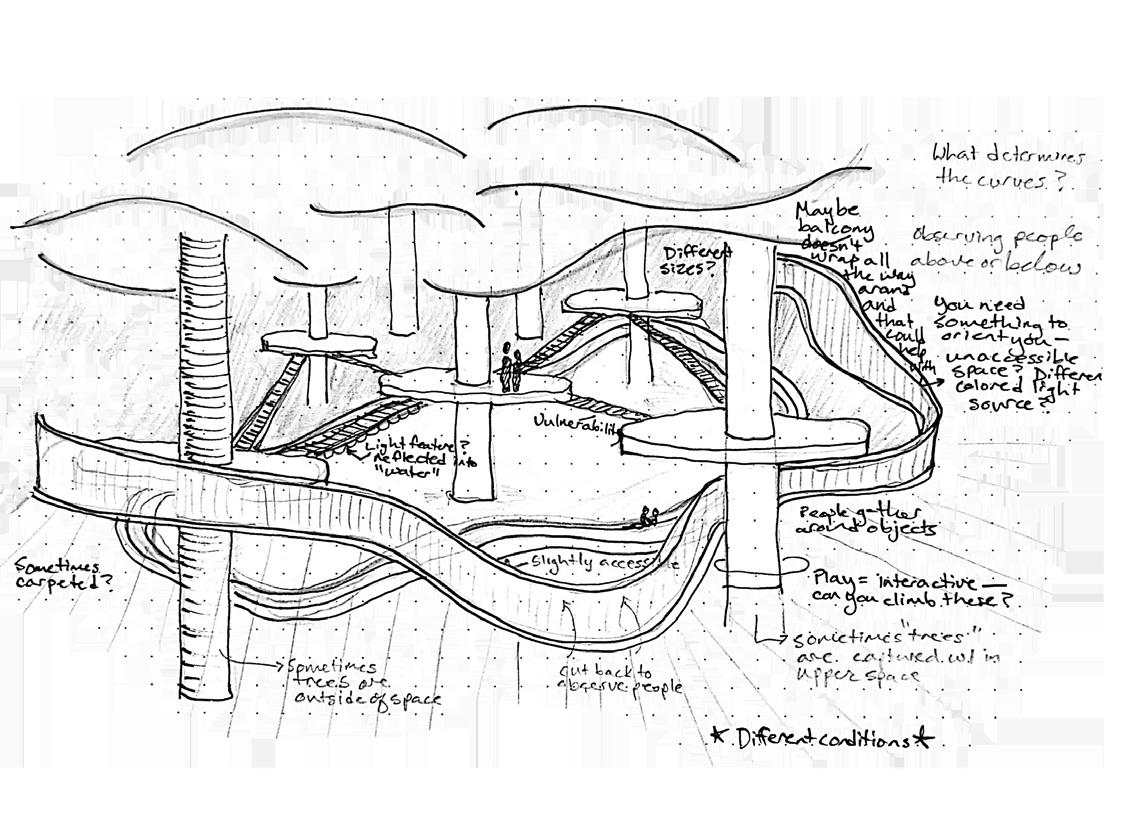 What determines
the curves?
observing people
above or below
Maybe
balcony
doesn't
wrap all
the way
around
and
that
could
help
with
You need
something to
orient you —
unaccessible
space? Different
colored light
source?
Different
sizes?
Vulnerability
Light feature?
reflected into
"water"
People gather
around objects
Sometimes
carpeted?
slightly accessible
Play = interactive —
can you climb these?
sometimes "trees"
are captured w/in
upper space
Sometimes
trees are
outside of space
cut back to
observe people
* Different conditions *